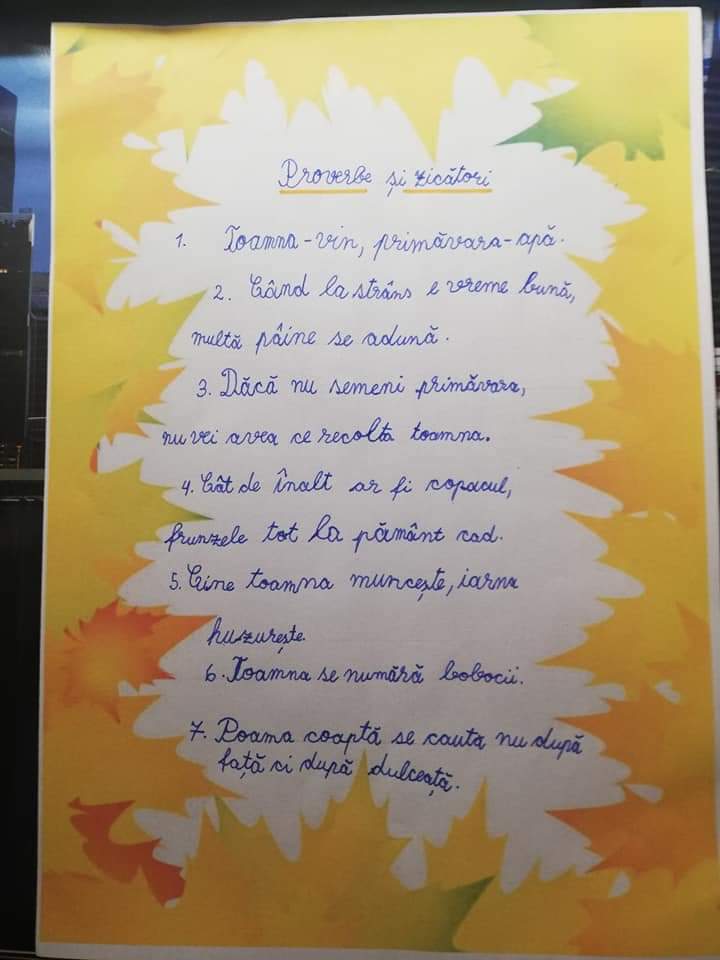 Proverbe și zicători
1. Toamna-vin, primăvara-apă.
2. Când la strâns e vreme bună,
multă pâine se adună.
3. Dăcă nu semeni primăvara,
nu vei avea ce recolta toamna.
4. Cât de înalt ar fi copacul,
frunzele tot la pământ cad.
5. Cine toamna muncește, iarna
huzurește.
6. Toamna se numără bobocii.
7. Poama coaptă se cauta nu după
față ci după dulceață.